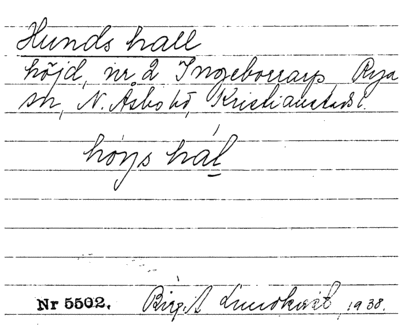 Hunds hall
höjd, nr 2 Ingeborrarp Rya
sn, N. Åsbo hd, Kristianstads l.
hóys hál
Nr 5502. Birgit Lundkvist, 1938.